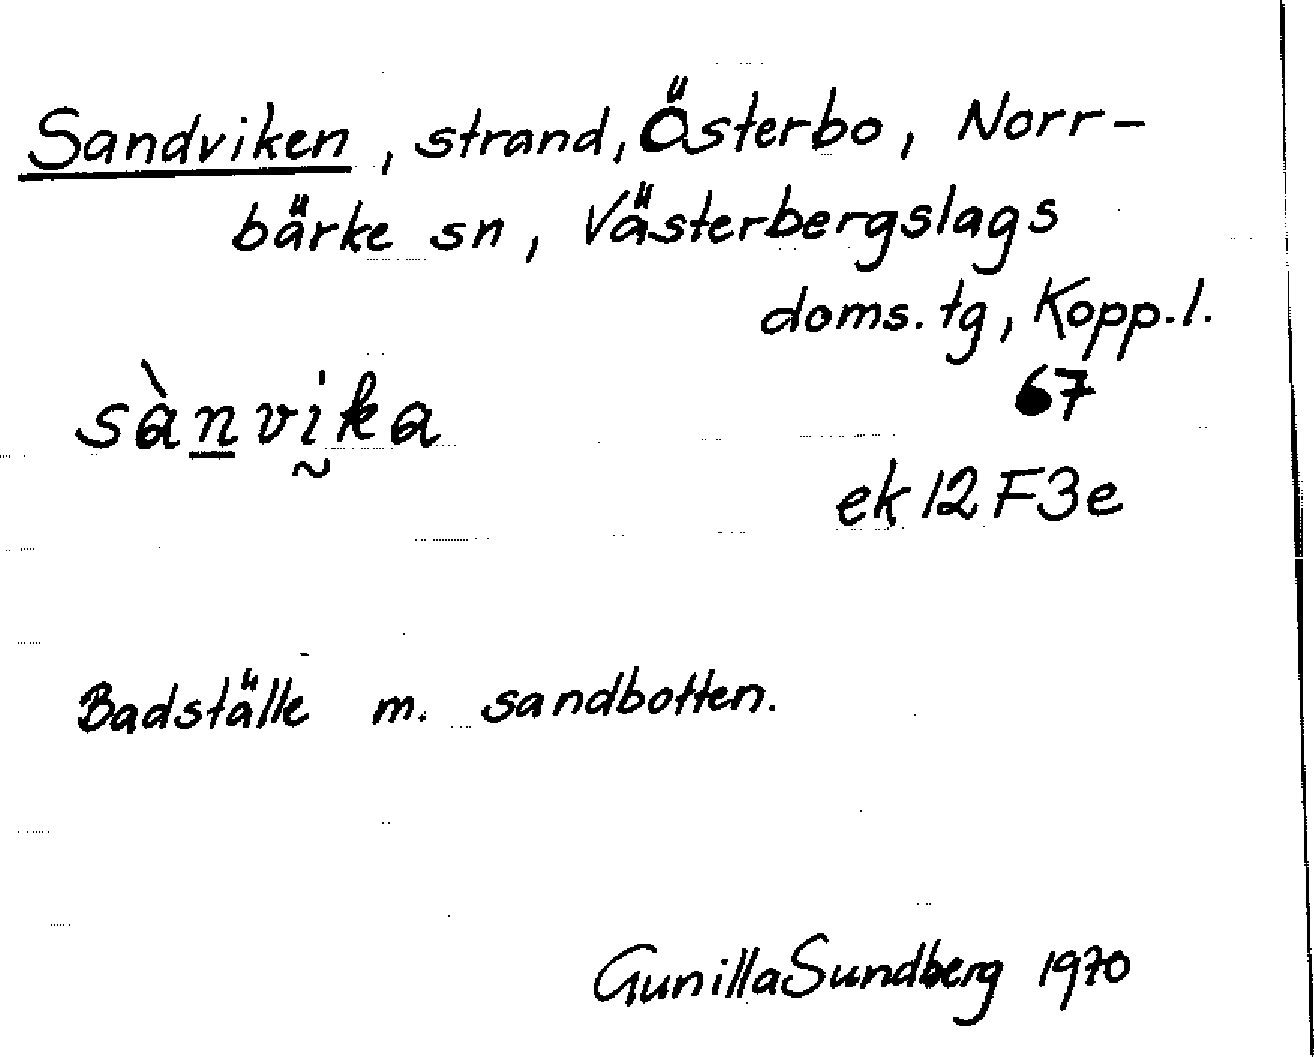 Sandviken, strand, Österbo, Norr-
bärke sn, Västerbergslags
doms. tg, Kopp. l.
67
sànvḭka
ek 12 F3e
Badställe m. sandbotten.
Gunilla Sundberg 1970